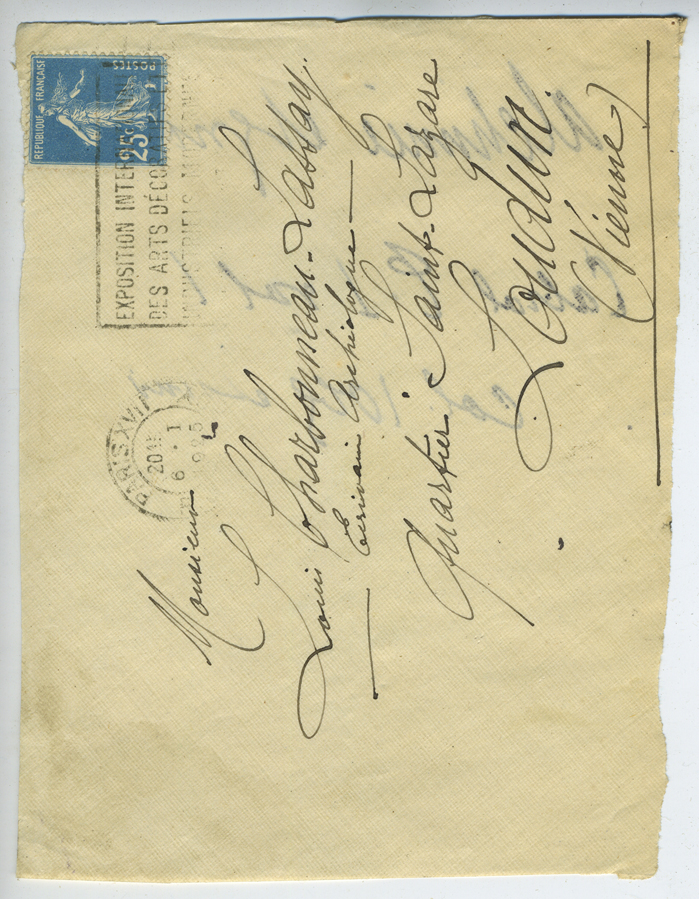 RÉPUBLIQUE FRANÇAISE
POSTES
25c
EXPOSITION INTER
DES ARTS DÉCO
PARIS XVII
20
6 · 1
925
Monsieur
Louis Charbonneau-Lassay.
Écrivain Archéologue
Quartier Saint-Lazare
Loudun.
(Vienne)